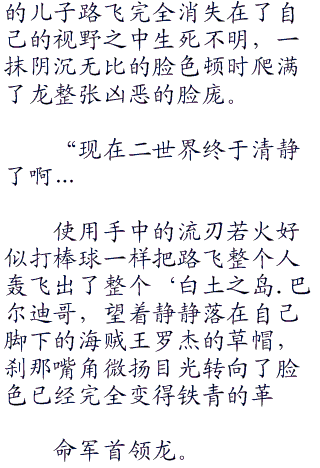 的儿子路飞完全消失在了自
己的视野之中生死不明，一
抹阴沉无比的脸色顿时爬满
了龙整张凶恶的脸庞。
“现在二世界终于清静
了啊...
使用手中的流刃若火好
似打棒球一样把路飞整个人
轰飞出了整个‘白土之岛.巴
尔迪哥，望着静静落在自己
脚下的海贼王罗杰的草帽，
刹那嘴角微扬目光转向了脸
色已经完全变得铁青的革
命军首领龙。